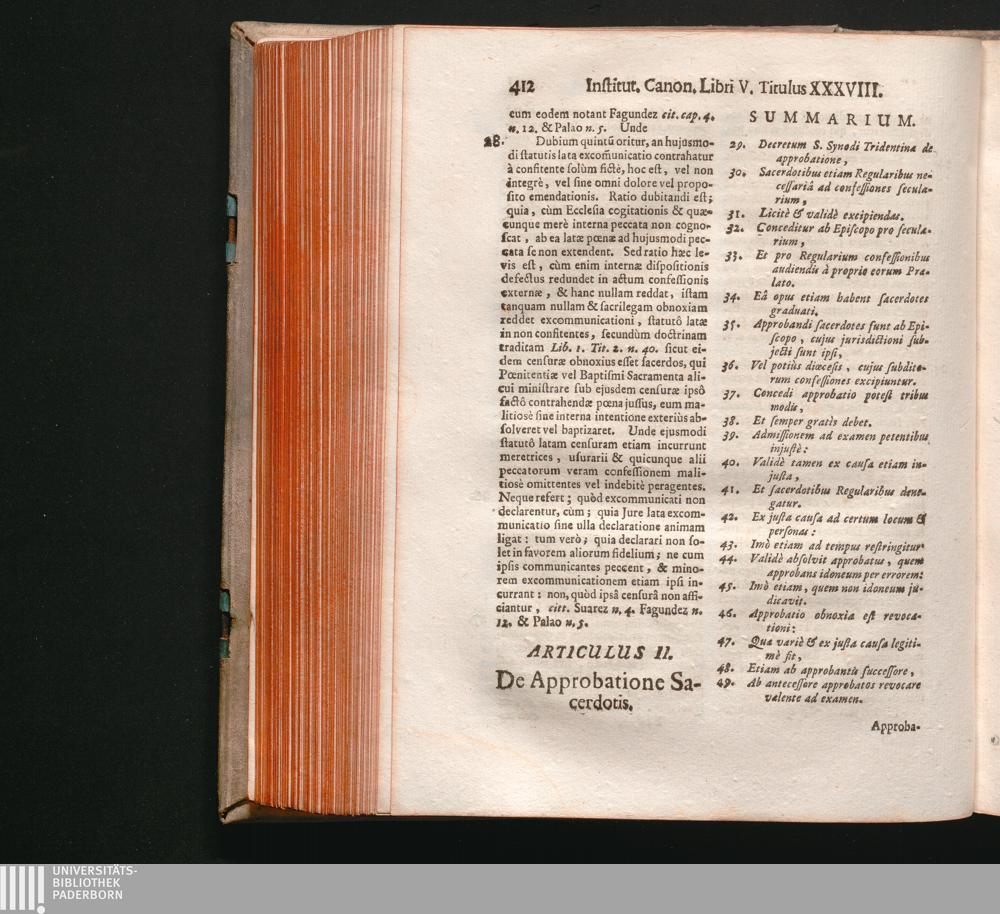 412 Inſtitut. Canon. Libri V. Titulus XXXVIII.
cum eodem notant Fagundez cit. cap. 4.
n. 12. & Palao n. 5. Unde
28. Dubium quintũ oritur, an hujusmo-
di ſtatutis lata excom̃unicatio contrahatur
à confitente ſolùm fictè, hoc eſt, vel non
integrè, vel ſine omni dolore vel propo-
ſito emendationis. Ratio dubitandi eſt;
quia, cùm Eccleſia cogitationis & quæ-
cunque merè interna peccata non cogno-
ſcat, ab ea latæ pœnæ ad hujusmodi pec-
cata ſe non extendent. Sed ratio hæc le-
vis eſt, cùm enim internæ diſpoſitionis
defectus redundet in actum confeſſionis
externæ, & hanc nullam reddat, iſtam
tanquam nullam & ſacrilegam obnoxiam
reddet excommunicationi, ſtatutô latæ
in non confitentes, ſecundùm doctrinam
traditam Lib. 1. Tit. 2. n. 40. ſicut ei-
dem cenſuræ obnoxius eſſet ſacerdos, qui
Pœnitentiæ vel Baptiſmi Sacramenta ali-
cui miniſtrare ſub ejusdem cenſuræ ipsô
factô contrahendæ pœna juſſus, eum ma-
litiosè ſine interna intentione exteriùs ab-
ſolveret vel baptizaret. Unde ejusmodi
ſtatutô latam cenſuram etiam incurrunt
meretrices, uſurarii & quicunque alii
peccatorum veram confeſſionem mali-
tiosè omittentes vel indebitè peragentes.
Neque refert; quòd excommunicati non
declarentur, cùm; quia Jure lata excom-
municatio ſine ulla declaratione animam
ligat: tum verò; quia declarari non ſo-
let in favorem aliorum fidelium; ne cum
ipſis communicantes peccent, & mino-
rem excommunicationem etiam ipſi in-
currant: non, quòd ipsâ cenſurâ non affi-
ciantur, citt. Suarez n. 4. Fagundez n.
12. & Palao n. 5.
ARTICULUS II.
De Approbatione Sa-
cerdotis.
SUMMARIUM.
29. Decretum S. Synodi Tridentina de
approbatione,
30. Sacerdotibus etiam Regularibus ne-
ceſſariâ ad confeſſiones ſecula-
rium,
31. Licitè & validè excipiendas.
32. Conceditur ab Epiſcopo pro ſecula-
rium,
33. Et pro Regularium confeſſionibus
audiendis à proprio eorum Præ-
lato.
34. Eâ opus etiam habent ſacerdotes
graduati.
35. Approbandi ſacerdotes ſunt ab Epi-
ſcopo, cujus jurisdictioni ſub-
jecti ſunt ipſi,
36. Vel potiùs diœceſis, cujus ſubdito-
rum confeſſiones excipiuntur.
37. Concedi approbatio poteſt tribus
modis,
38. Et ſemper gratis debet.
39. Admiſſionem ad examen petentibus
injuſtè:
40. Validè tamen ex cauſa etiam in-
juſta,
41. Et ſacerdotibus Regularibus dene-
gatur.
42. Ex juſta cauſa ad certum locum &
perſonas:
43. Imò etiam ad tempus reſtringitur.
44. Validè abſolvit approbatus, quem
approbans idoneum per errorem:
45. Imò etiam, quem non idoneum ju-
dicavit.
46. Approbatio obnoxia eſt revoca-
tioni:
47. Qua variè & ex juſta cauſa legiti-
mè fit,
48. Etiam ab approbantis ſucceſſore,
49. Ab anteceſſore approbatos revocare
valente ad examen.
Approba-
UNIVERSITÄTS-
BIBLIOTHEK
PADERBORN